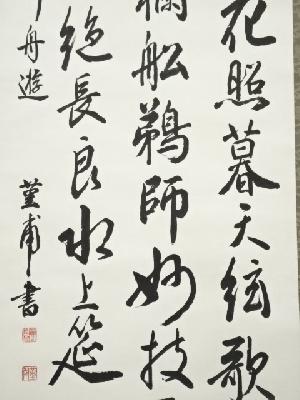 花照暮天絃歌
船鵜師妙技
絶長良水上筵
舟遊
菫甫書